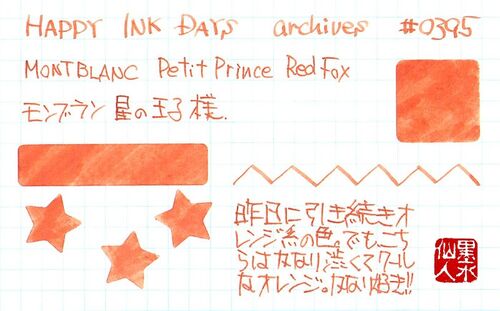 HAPPY INK DAYS archives #0395
MONTBLANC Petit Prince Red Fox
モンブラン 星の王子様.
昨日に引き続きオ
レンジ系の色。でもこち
らはかなり渋くてクール
なオレンジ。かなり好き!!
墨水
仙人